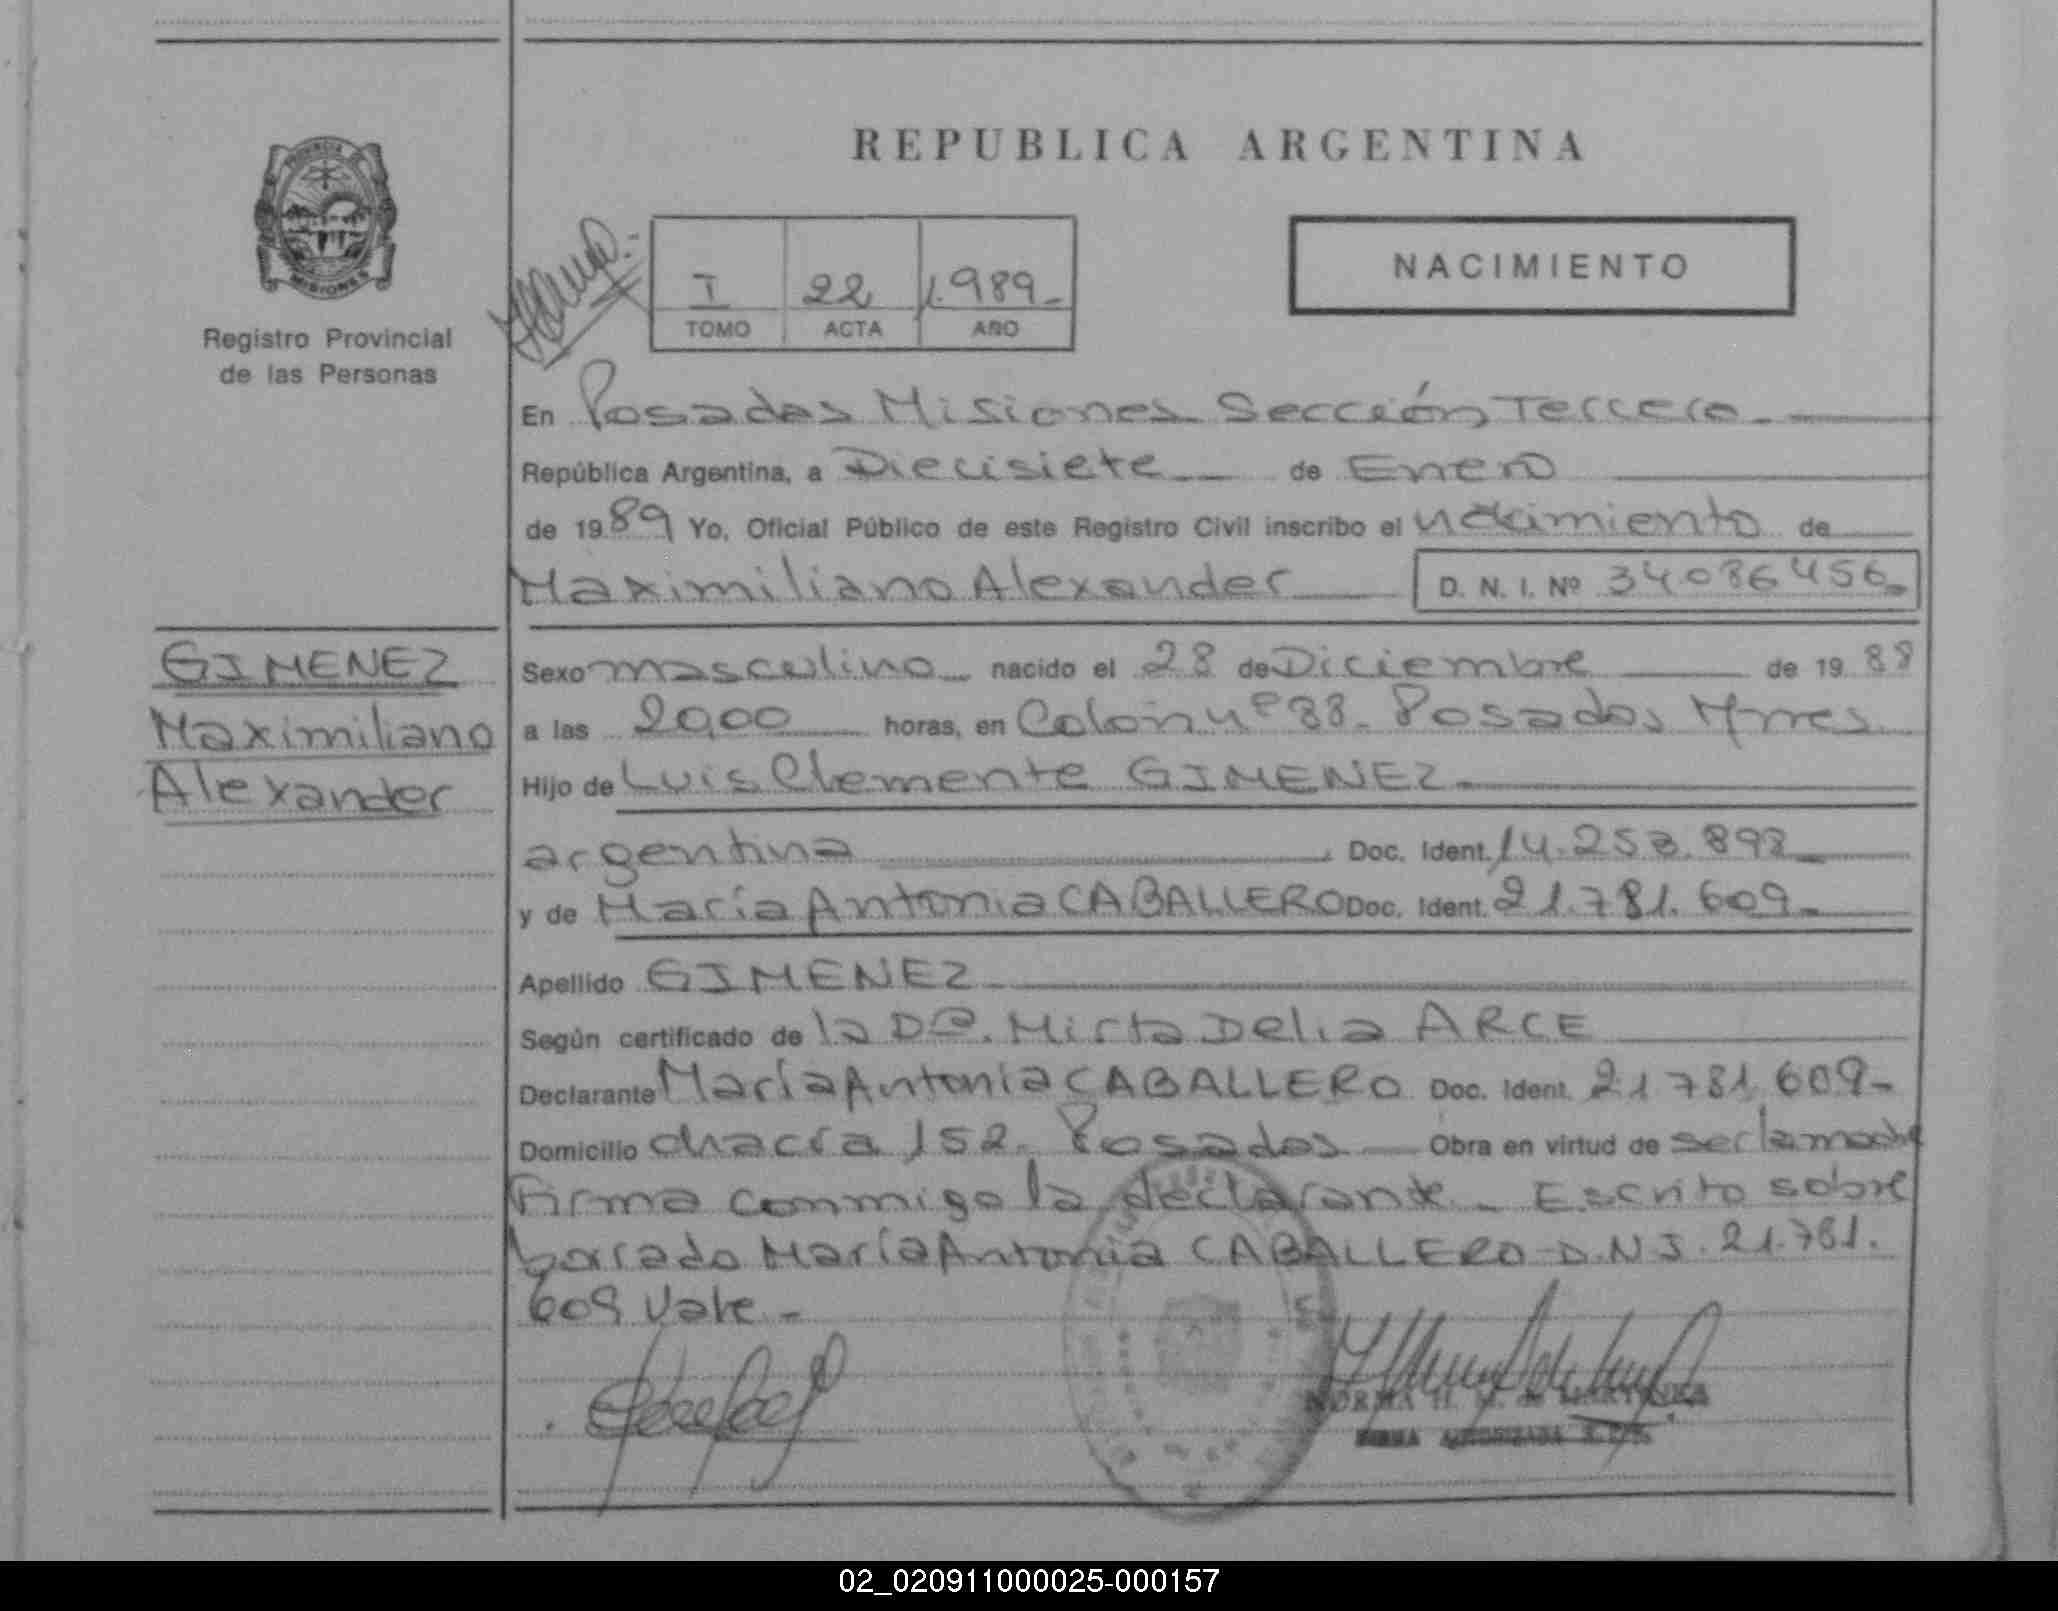 REPUBLICA ARGENTINA
PROVINCIA DE
MISIONES
Registro Provincial
de las Personas
I 22 1.989-
TOMO ACTA AÑO
NACIMIENTO
En Posadas Misiones Sección Tercera-
República Argentina, a Diecisiete de Enero
de 1989 Yo, Oficial Público de este Registro Civil inscribo el nacimiento de
Maximiliano Alexander D. N. I. Nº 34086456-
GIMENEZ
Maximiliano
Alexander
Sexo masculino nacido el 28 de Diciembre de 19 88
a las 20,00 horas, en Colón nº 88. Posadas Mnes
Hijo de Luis Clemente GIMENEZ-
argentina Doc. Ident. 14.253.898-
y de María Antonia CABALLERO Doc. Ident. 21.781.609-
Apellido GIMENEZ-
Según certificado de la Dra. Mirta Delia ARCE
Declarante María Antonia CABALLERO Doc. Ident. 21 781 609-
Domicilio chacra 152. Posadas Obra en virtud de ser la madre
Firma conmigo la declarante- Escrito sobre
borrado María Antonia CABALLERO D.N.I. 21.781.
609 Vale-
NORMA H. M. de MARTINKA
FIRMA AUTORIZADA
02_020911000025-000157